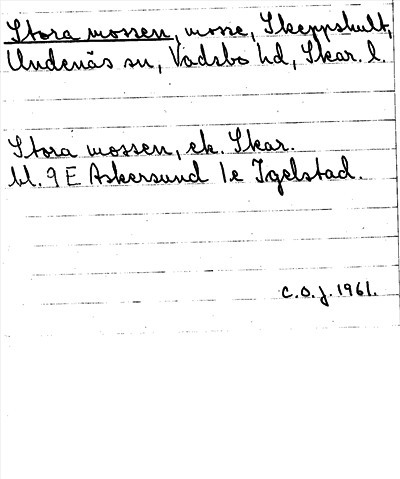 Stora mossen, mosse, Skeppshult,
Undenäs sn, Vadsbo hd, Skar. l.
Stora mossen, ek. Skar.
bl. 9 E Askersund 1e Igelstad.
C.O.J. 1961.